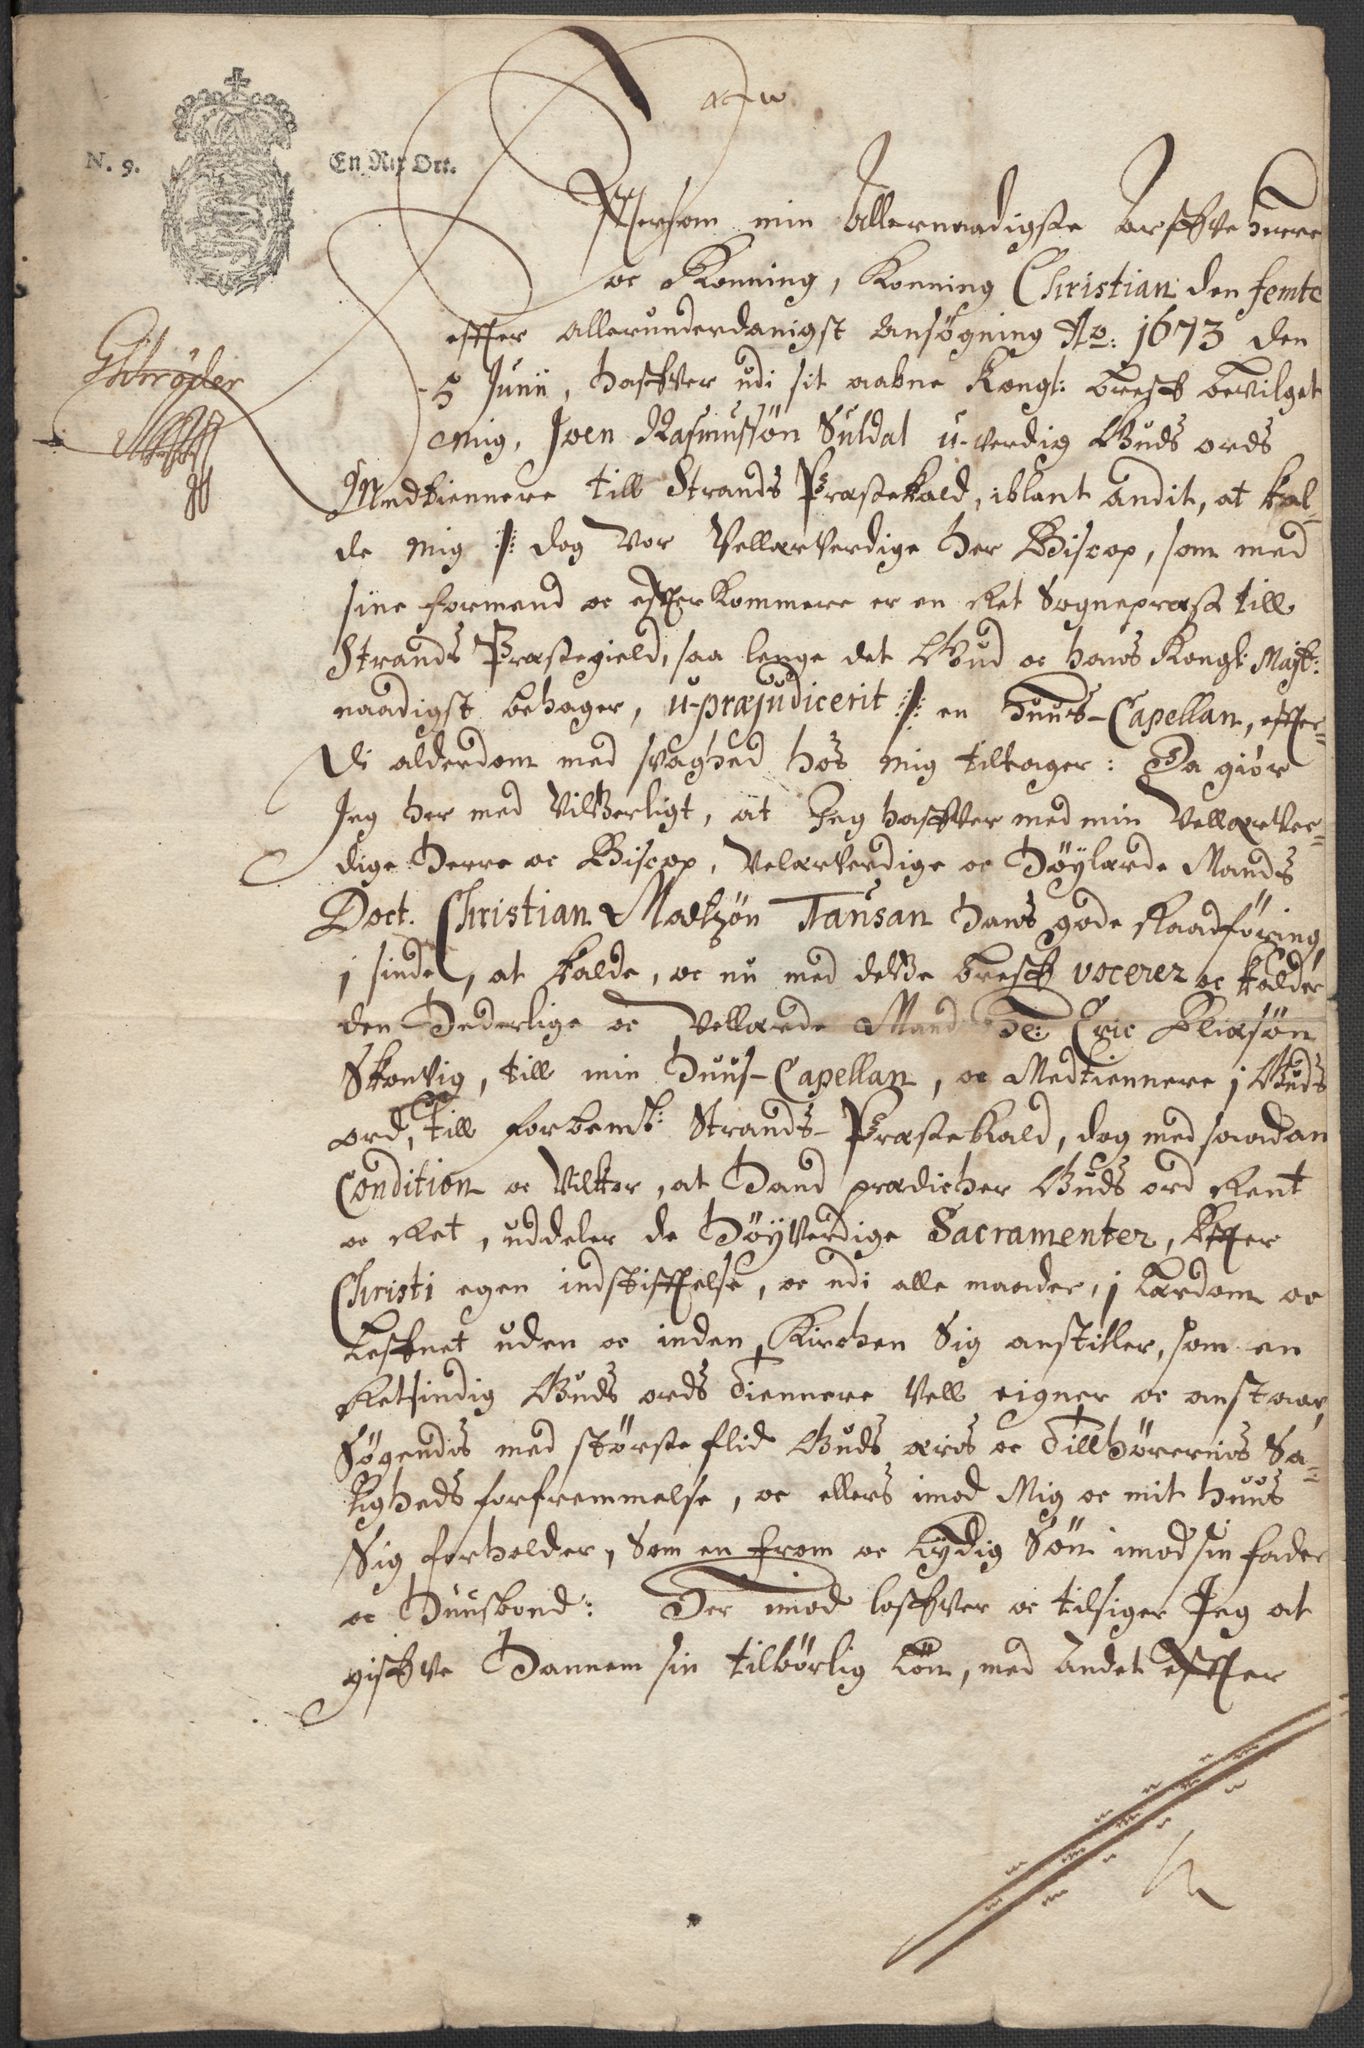 N. 9. En Rix Ort.
Effersom min Allernaadigste Arffve Herre
oc Konning, Konning Christian den femte
effter allerunderdanigst Ansøgning Ao: 1673 den
5 Junii, haffver udi sit aabne Kongl: breff bevilget
mig, Joen Rasmussøn Suldal u-verdig Guds ords
Medtiennere till Strands Præstekald, iblant andit, at kal-
de mig /: dog vor Vellærverdige Her Biscop, som med
sine formend oc effterkommere er en Ret Sognepræst till
Strands Præstegield, saa lenge det Gud oc hans Kongl: Majt:
naadigst behager, u-præjudicerit :/ en Huus-Capellan, effter-
di alderdom med svaghed hos mig tiltager: Da giør
Jeg her med vitterligt, at Jeg haffver med min Vellærver-
dige Herre oc Biscop, Velærverdige oc Høylærde Mands
Doct. Christian Madtzøn Tausan hans gode Raadføring,
j sinde, at kalde, oc nu med dette breff vocerer oc kalder
den Hederlige oc Vellærde Mand Hr: Eric Eliasøn
Skonvig, till min Huus-Capellan, oc Medtiennere j Guds
ord, till forbemt: Strands-Præstekald, dog med saadan
Condition oc Vilkor, at Hand prædicher Guds ord Rent
oc Ret, uddeler de Høyverdige Sacramenter, Effter
Christi egen indstifftelse, oc udi alle maader, j Lærdom oc
Leffnet uden oc inden Kirchen Sig anstiller, som en
Retsindig Guds ords Tiennere Vell eigner oc anstaar,
Søgendis med største flid Guds æris oc Tillhørernis Sa-
ligheds forfremmelse, oc ellers imod Mig oc mit Huus
Sig forholder, Som en from oc lydig Søn imod sin fader
oc Huusbond: Der imod loffver oc tilsiger Jeg at
giffve Hannem sin tilbørlig Løn, med Andet effter